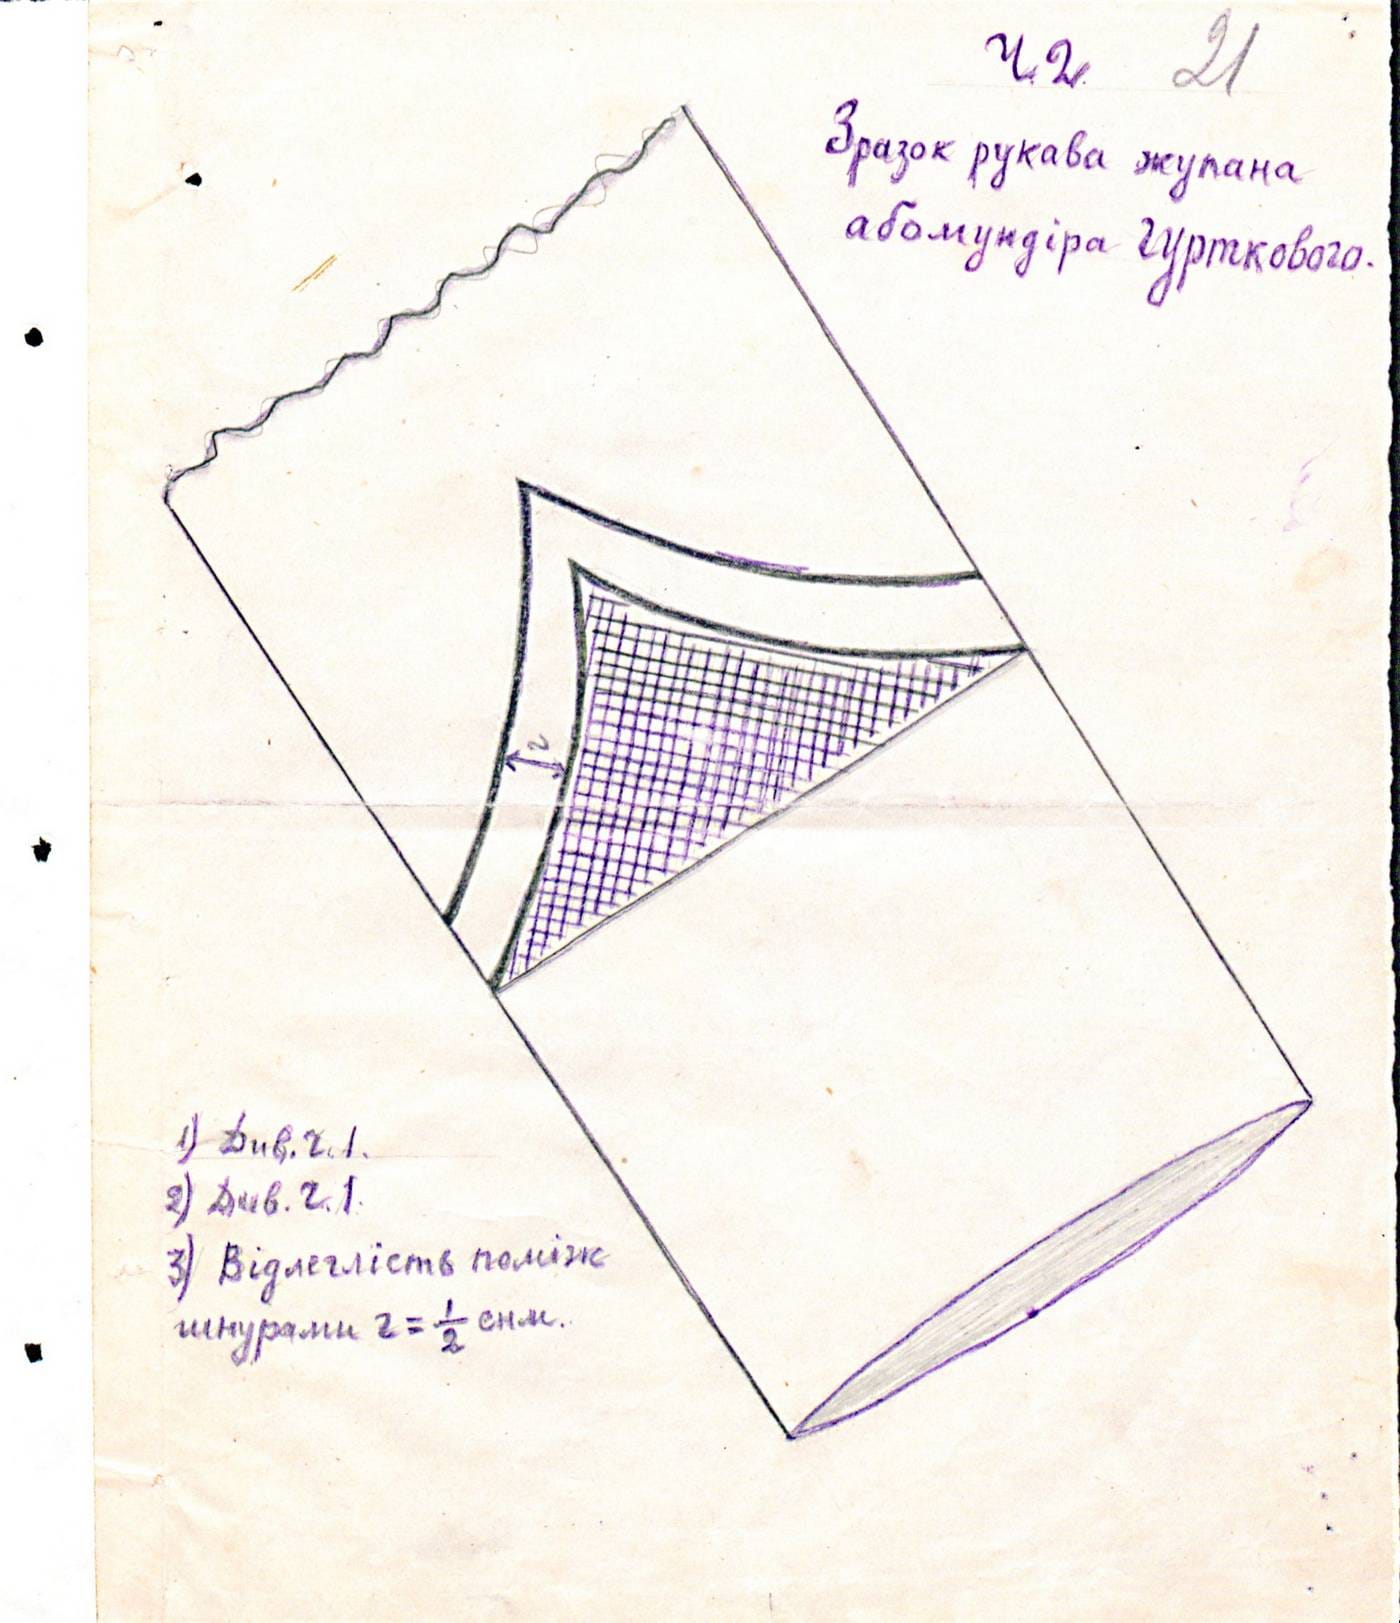 Ч.2. 21
Зразок рукава жупана
або мундіра гурткового.
r
1) Див. ч. 1.
2) Див. ч. 1.
3) Відлеглість поміж
шнурами r = 1/2 снм.